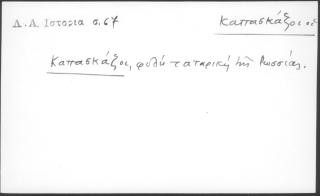 Δ. Α. Ιστορια σ. 67
Καπασκάξοι οἱ
Καπασκάξοι, φυλὴ ταταρικὴ τῆς Ρωσσίας.